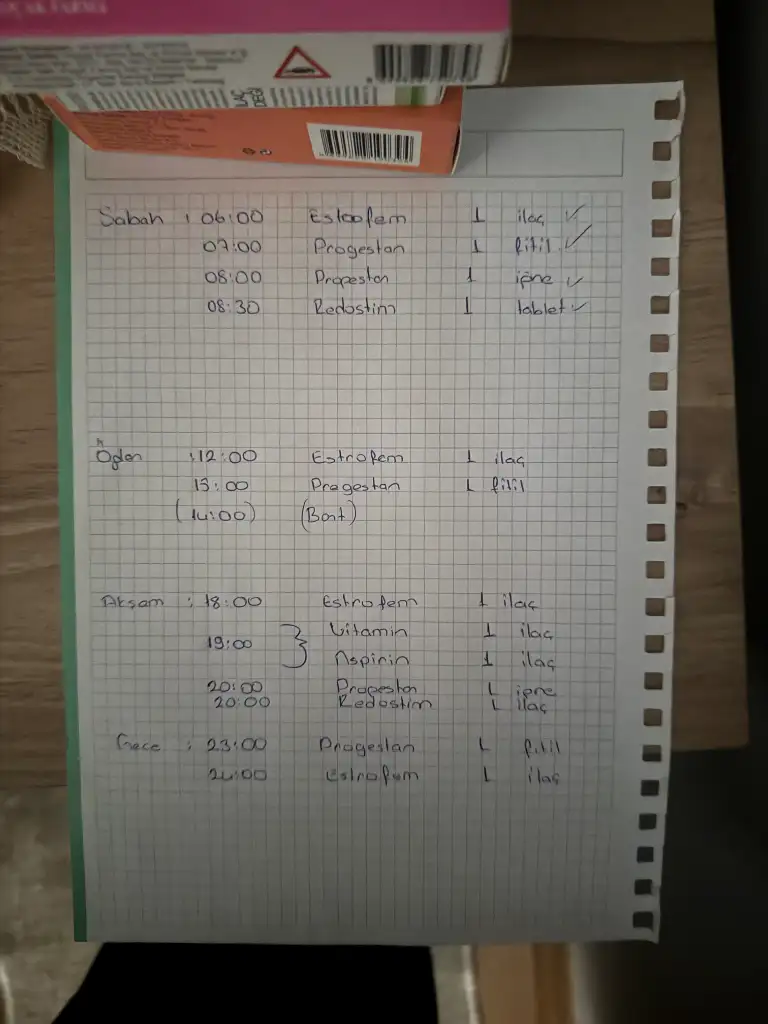 Sabah : 06:00 Estrofem 1 ilaç ✓
07:00 Progestan 1 fitil ✓
08:00 Progestan 1 iğne ✓
08:30 Redostim 1 tablet ✓
Öğlen : 12:00 Estrofem 1 ilaç
13:00 Progestan 1 fitil
(14:00) (Bant)
Akşam : 18:00 Estrofem 1 ilaç
19:00 } Vitamin 1 ilaç
Aspirin 1 ilaç
20:00 Progestan 1 iğne
20:00 Redostim 1 ilaç
Gece : 23:00 Progestan 1 fitil
24:00 Estrofem 1 ilaç